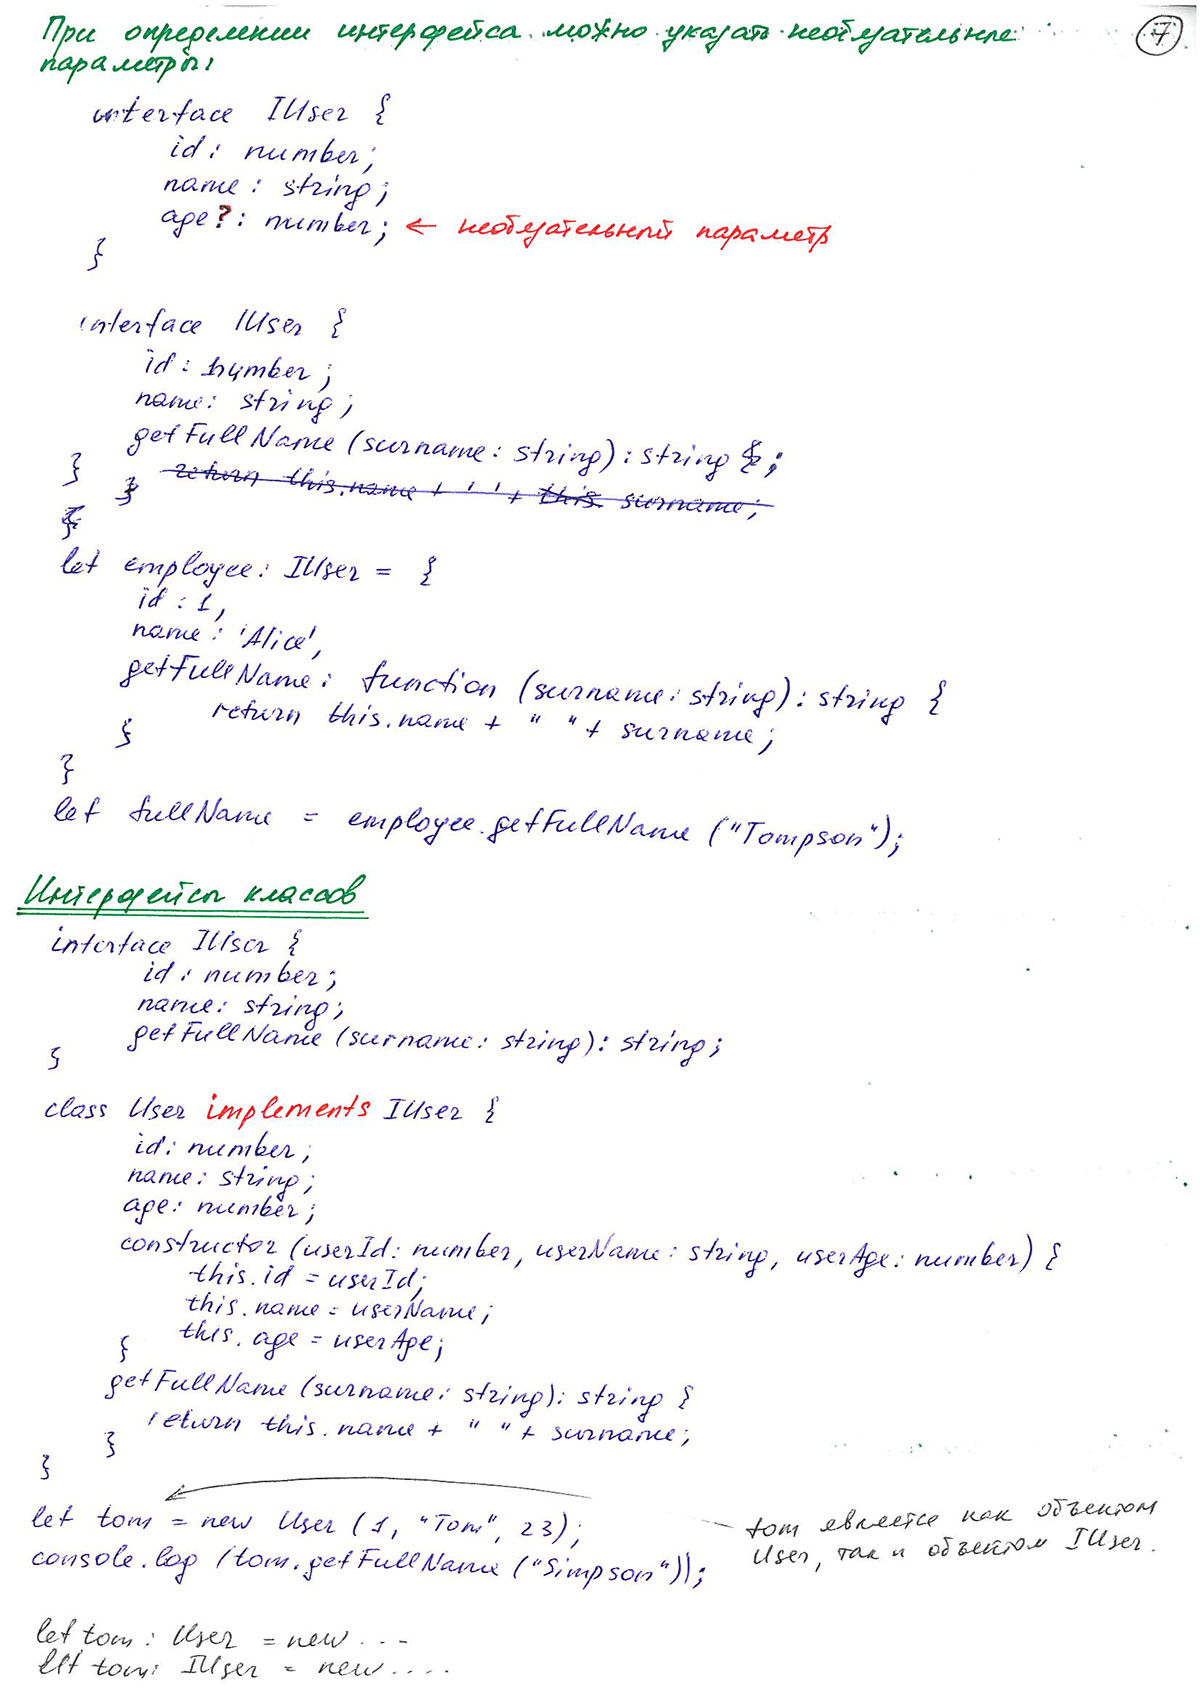 При определении интерфейса можно указать необязательные
параметры:
7
interface IUser {
id: number;
name: string;
age?: number; ← необязательный параметр
}
interface IUser {
id: number;
name: string;
getFullName (surname: string): string {;
}
return this.name + ' ' + this surname;
}
}
let employee: IUser = {
id: 1,
name: 'Alice',
getFullName: function (surname: string): string {
return this.name + " " + surname;
}
}
let fullName = employee.getFullName ("Tompson");
Интерфейсы классов
interface IUser {
id: number;
name: string;
getFullName (surname: string): string;
}
class User implements IUser {
id: number;
name: string;
age: number;
constructor (userId: number, userName: string, userAge: number) {
this.id = userId;
this.name = userName;
this.age = userAge;
}
getFullName (surname: string): string {
return this.name + " " + surname;
}
}
let tom = new User (1, "Tom", 23);
console.log (tom.getFullName ("Simpson"));
tom является как объектом
User, так и объектом IUser.
let tom: User = new ...
let tom: IUser = new ....